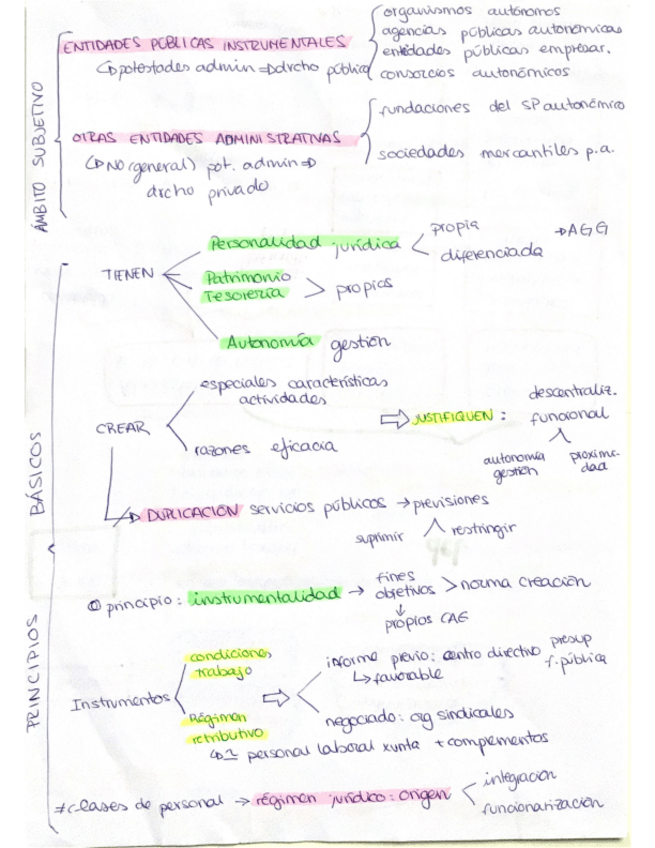 ÁMBITO SUBJETIVO
ENTIDADES PÚBLICAS INSTRUMENTALES
↳ potestades admin ⇒ drcho público
organismos autónomos
agencias públicas autonómicas
entidades públicas empresar.
consorcios autonómicos
OTRAS ENTIDADES ADMINISTRATIVAS
(↳ NO (general) pot. admin ⇒
drcho privado
fundaciones del SP autonómico
sociedades mercantiles p.a.
PRINCIPIOS BÁSICOS
TIENEN
Personalidad jurídica
propia
diferenciada
→ AGG
Patrimonio
Tesorería
propios
Autonomía gestión
CREAR
especiales características
actividades
razones eficacia
⇒ JUSTIFIQUEN :
descentraliz.
funcional
autonomía
gestión
proximi-
dad
DUPLICACIÓN servicios públicos → previsiones
suprimir
restringir
principio : instrumentalidad →
fines
objetivos > norma creación
↓
propios CAG
Instrumentos
condiciones
trabajo
Régimen
retributivo
informe previo : centro directivo
presup
f. pública
↳ favorable
negociado : org sindicales
↳ ≃ personal laboral xunta + complementos
≠ clases de personal → régimen jurídico : origen
integración
funcionarización